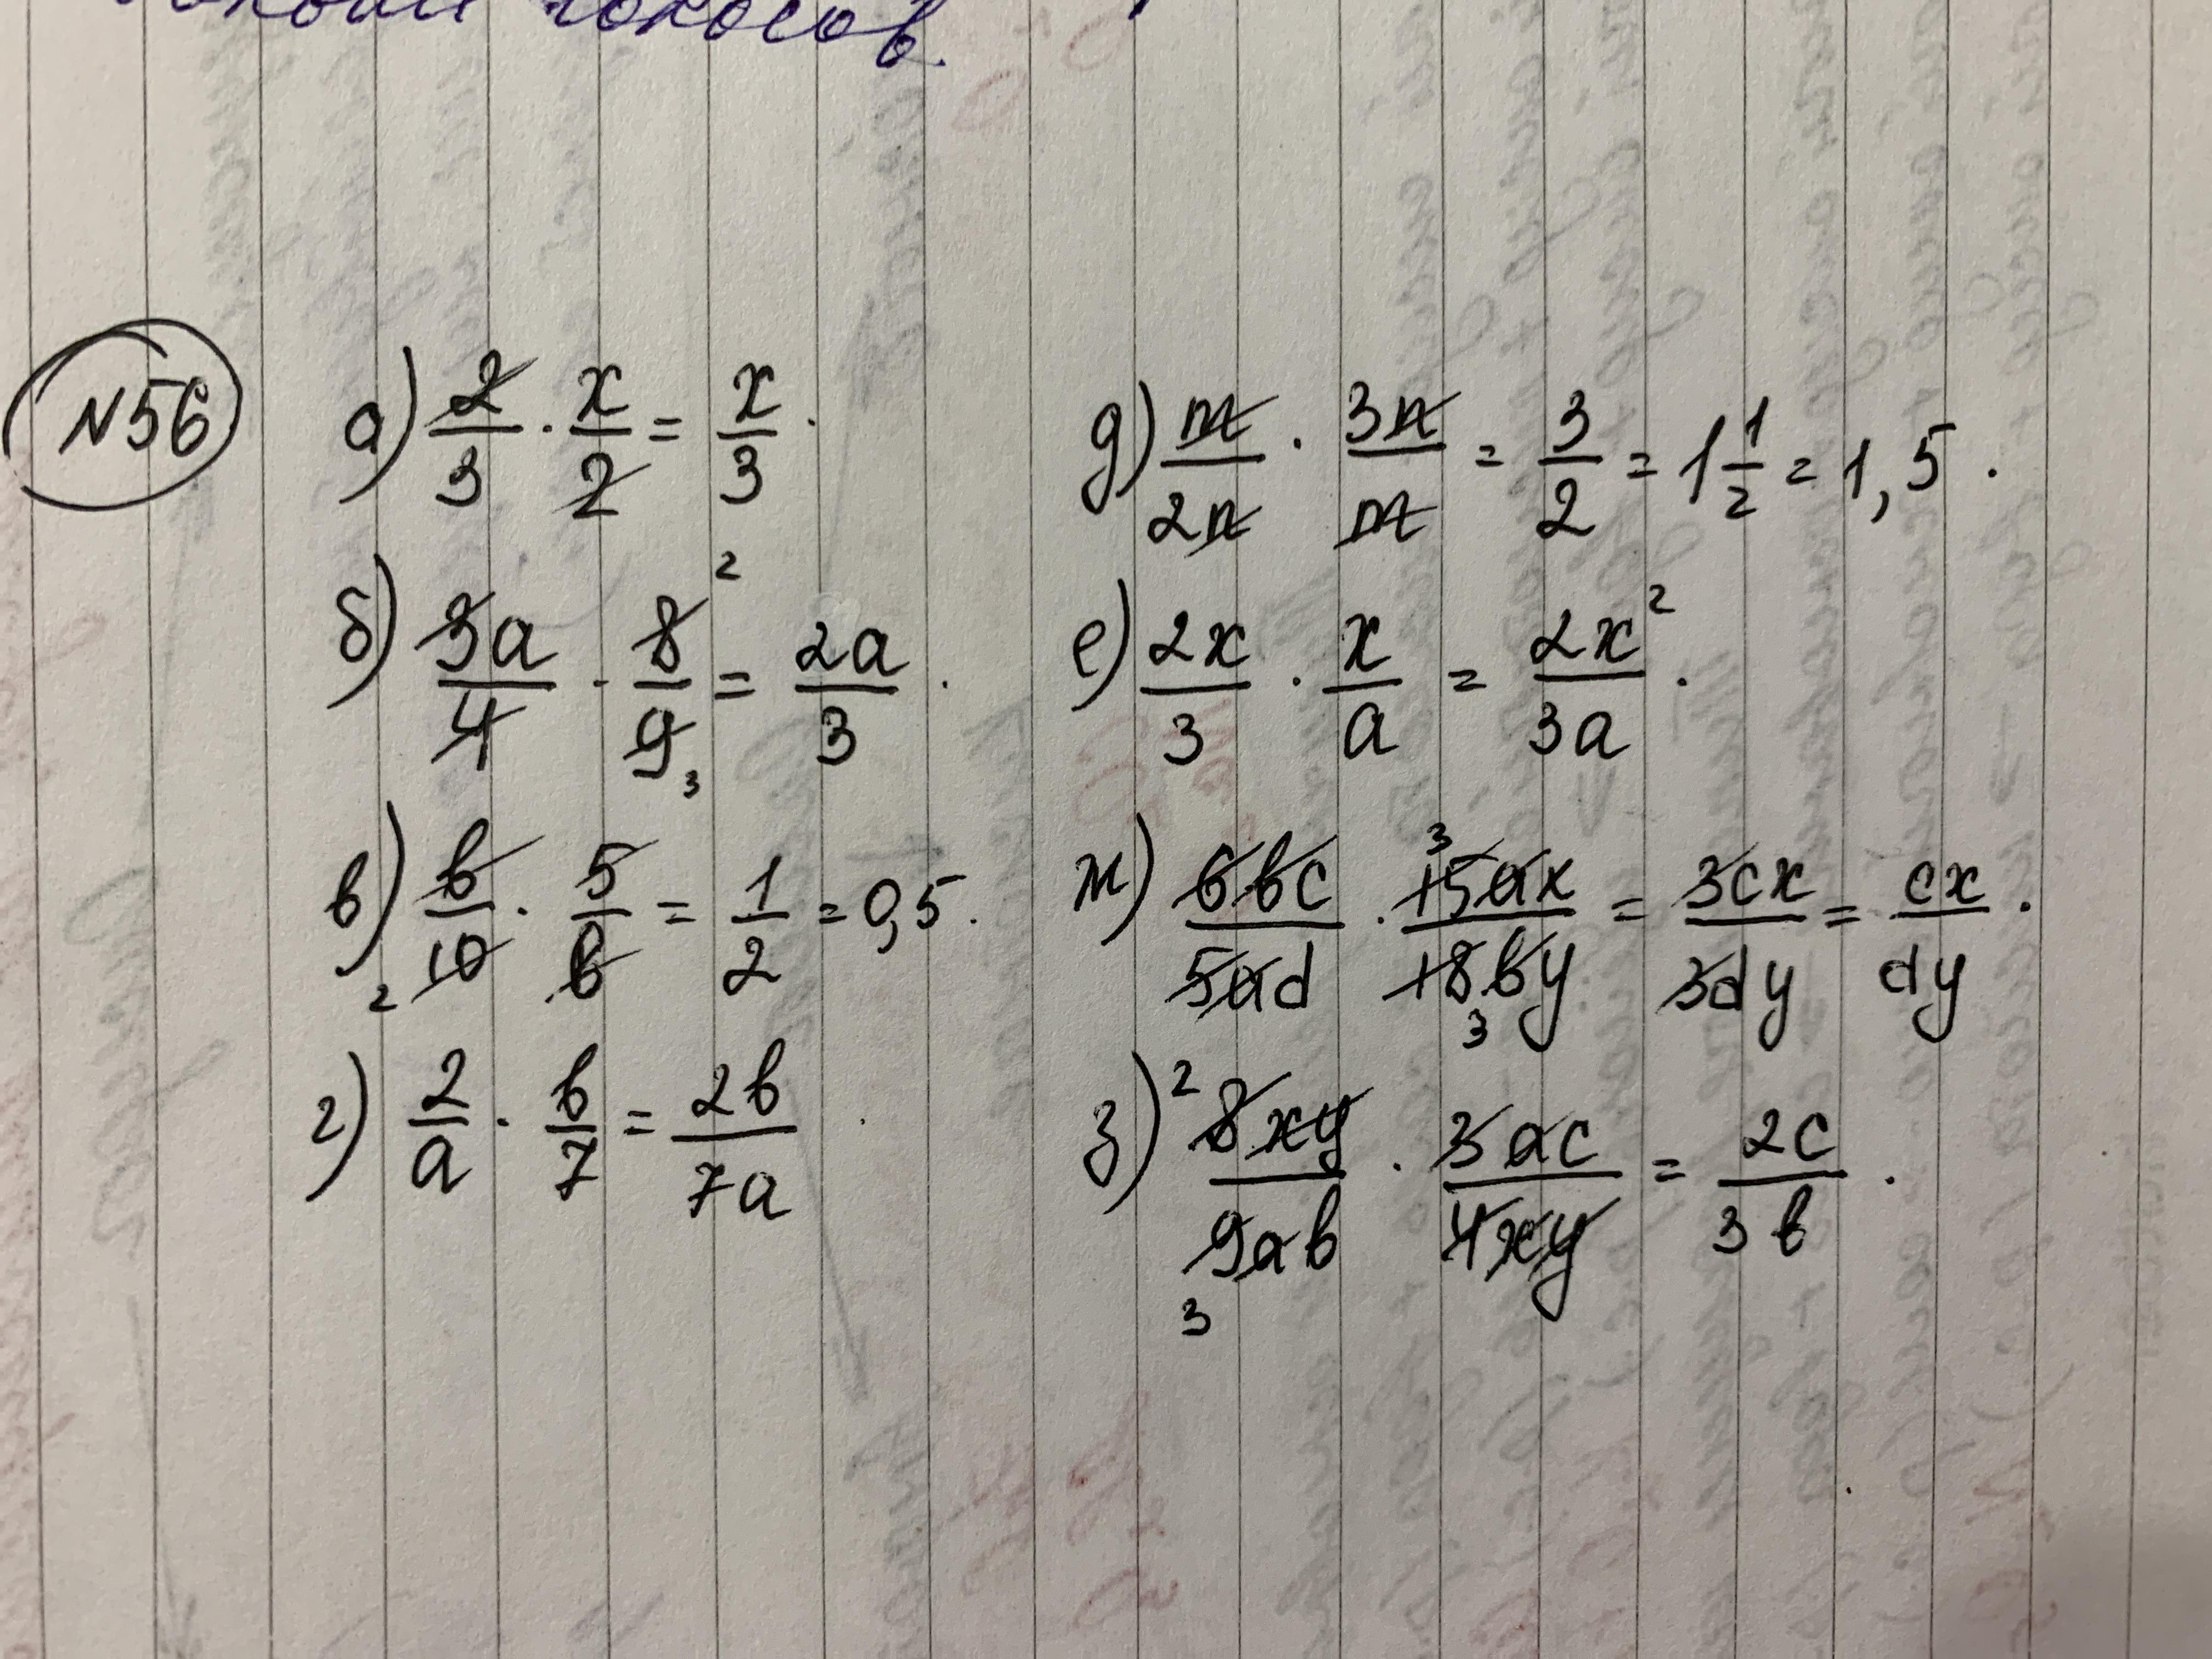 чокосов.
№56
а) 2/3 · x/2 = x/3.
б) 3a/4 · 8/9 = 2a/3. 2 3
в) b/10 · 5/b = 1/2 = 0,5. 2
г) 2/a · b/7 = 2b/7a.
д) m/2n · 3n/m = 3/2 = 1 1/2 = 1,5.
е) 2x/3 · x/a = 2x²/3a.
ж) 6bc/5ad · 15ax/18by = 3cx/3dy = cx/dy. 3 3
з) 8xy/9ab · 3ac/4xy = 2c/3b. 2 3